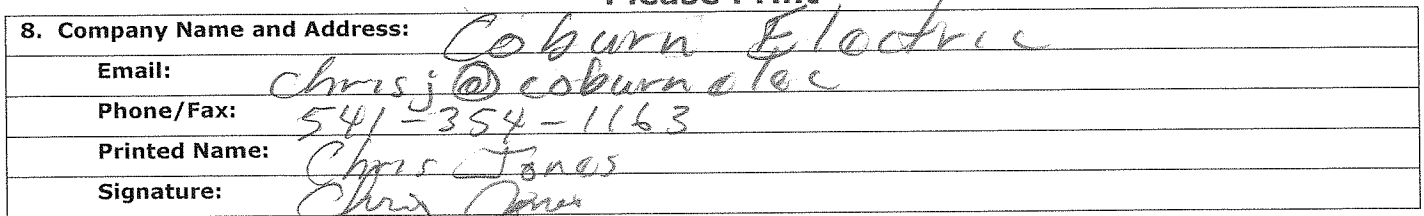 Please Print
8. Company Name and Address: Coburn Electric
Email: chrisj@coburnelec
Phone/Fax: 541-354-1163
Printed Name: Chris Jones
Signature: Chris Jones